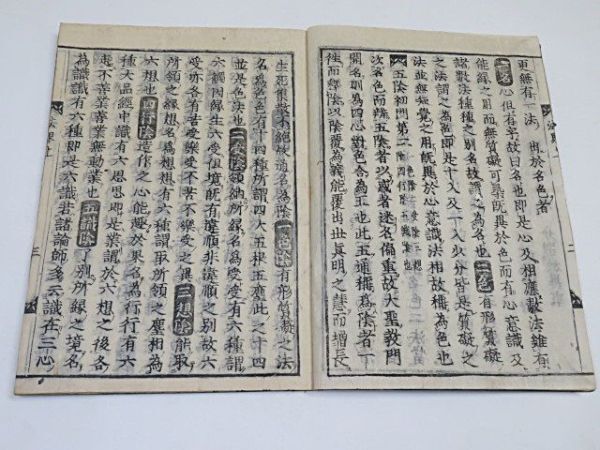 更無有一法 出於名色者
一名 心但有字故曰名也即是心及相應數法雖有
能緣之用而無質礙可尋既異於色而有心意識及
諸數法種種之別名故謂之為名也 二色 有形質礙
之法謂之為色即是十入及一入少分皆是質礙之
法並無知覺之用既異於心意識法相故稱為色也
五陰初門第二
次名色而辯五陰者以或者迷名偏重故大聖教門
開名為四心對色合為五也此五通稱為陰者一
往而釋陰以陰覆為義能覆出世真明之慧而增長
二
生死集散不絕故通名為陰 一色陰 有形質礙之法
名為色色有十四種所謂四大五根五塵此之十四
並是色法也 二受陰 領納所緣名為受受有六種謂
六觸因緣生六受但境既有違順非違順之別故六
受亦各有苦受樂受不苦不樂受之異 三想陰 能取
所領之緣想名為想想有六種謂取所領之塵相為
六想也 四行陰 造作之心能趣於果名為行行有六
種大品經中說有六思思即是業謂於六想之後各
起不善業善業無動業也 五識陰 了別所緣之境名
為識識有六種即是六識若諸論師多云識在三心
三